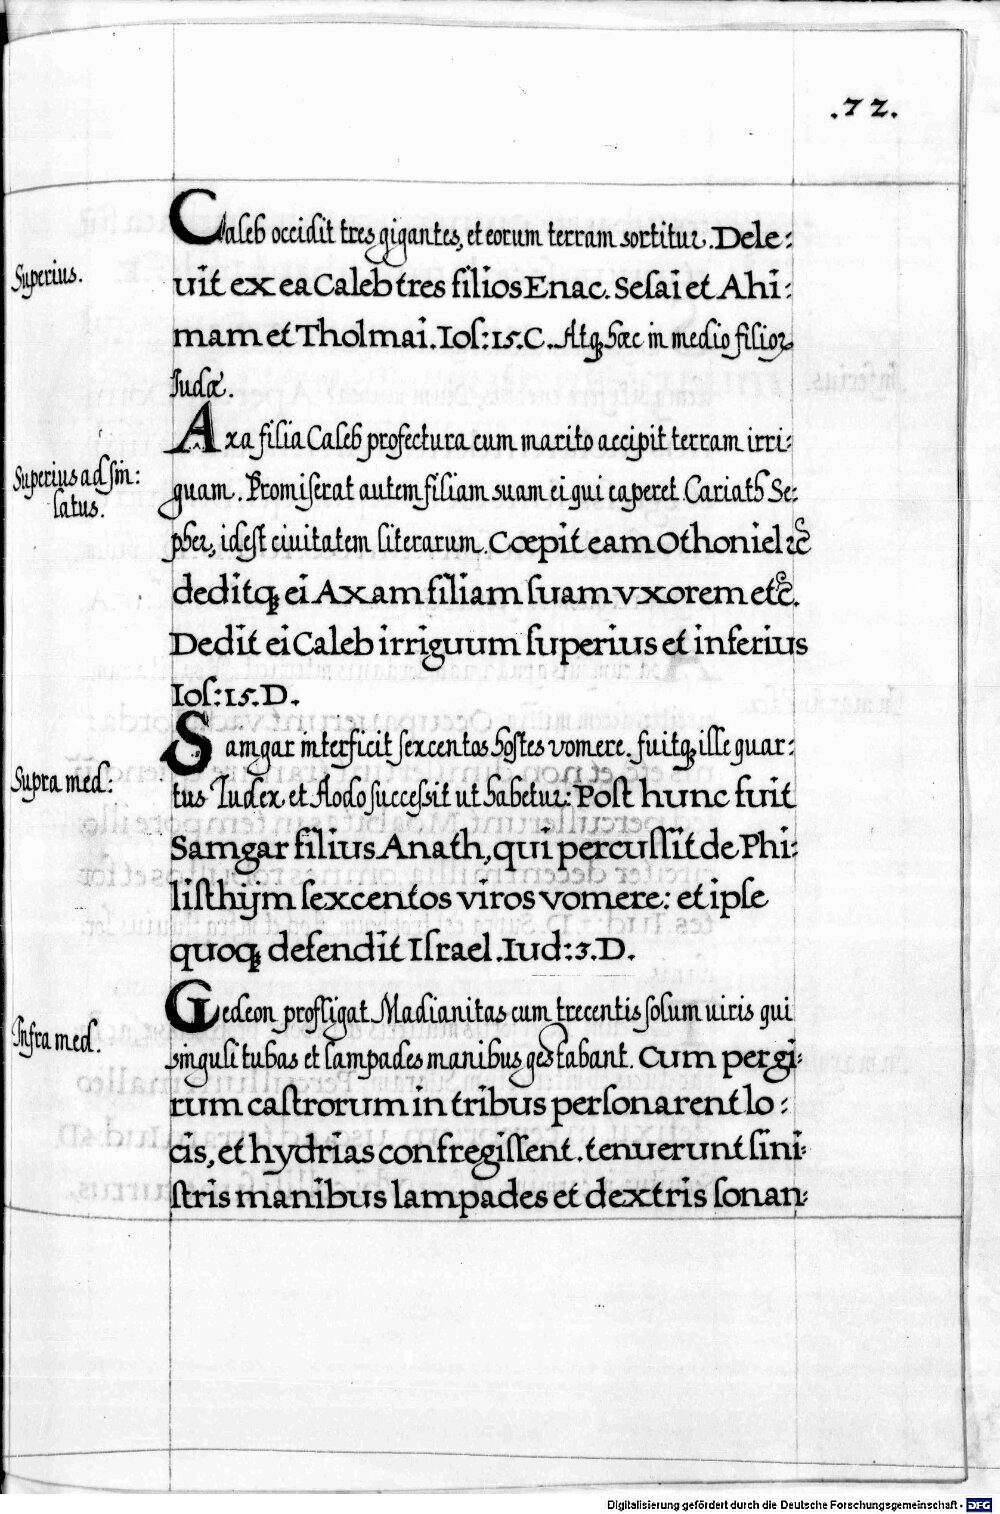 .72.
Caleb occidit tres gigantes, et eorum terram sortitur. Dele:
Superius.
uit ex ea Caleb tres filios Enac. Sesai et Ahi:
mam et Tholmai. Ioſ: 15. C. Atqꝫ hæc in medio filioꝝ
Iudæ.
Axa filia Caleb profectura cum marito accipit terram irri:
Superius ad sin:
latus.
guam. Promiserat autem filiam suam ei qui caperet Cariath Se:
pher, idest ciuitatem literarum. Cœpit eam Othoniel ꝛc̃
deditqꝫ ei Axam filiam ſuam vxorem etc̃.
Dedit ei Caleb irriguum ſuperius et inferius
Ioſ: 15. D.
Samgar interficit sexcentos hostes vomere. fuitqꝫ ille quar:
Supra med:
tus Iudex et Aodo successit ut habetur: Poſt hunc fuit
Samgar filius Anath, qui percuſſit de Phi:
liſthijm ſexcentos viros vomere: et ipſe
quoqꝫ defendit Iſrael. Iud: 3. D.
Gedeon profligat Madianitas cum trecentis solum uiris qui
Infra med:
singuli tubas et lampades manibus gestabant. Cum per gi:
rum caſtrorum in tribus perſonarent lo:
cis, et hydrias confregiſſent. tenuerunt ſini:
ſtris manibus lampades et dextris ſonan:
Digitalisierung gefördert durch die Deutsche Forschungsgemeinschaft - DFG